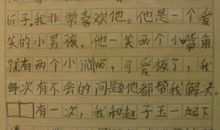 所于我非常喜欢他。他是一个爱
笑的小男孩，他一笑两个小嘴角
就有两个小酒窝，可爱极了，我
每次有不会的问题他都帮我解决。
有一次，我和赵子玉一起下